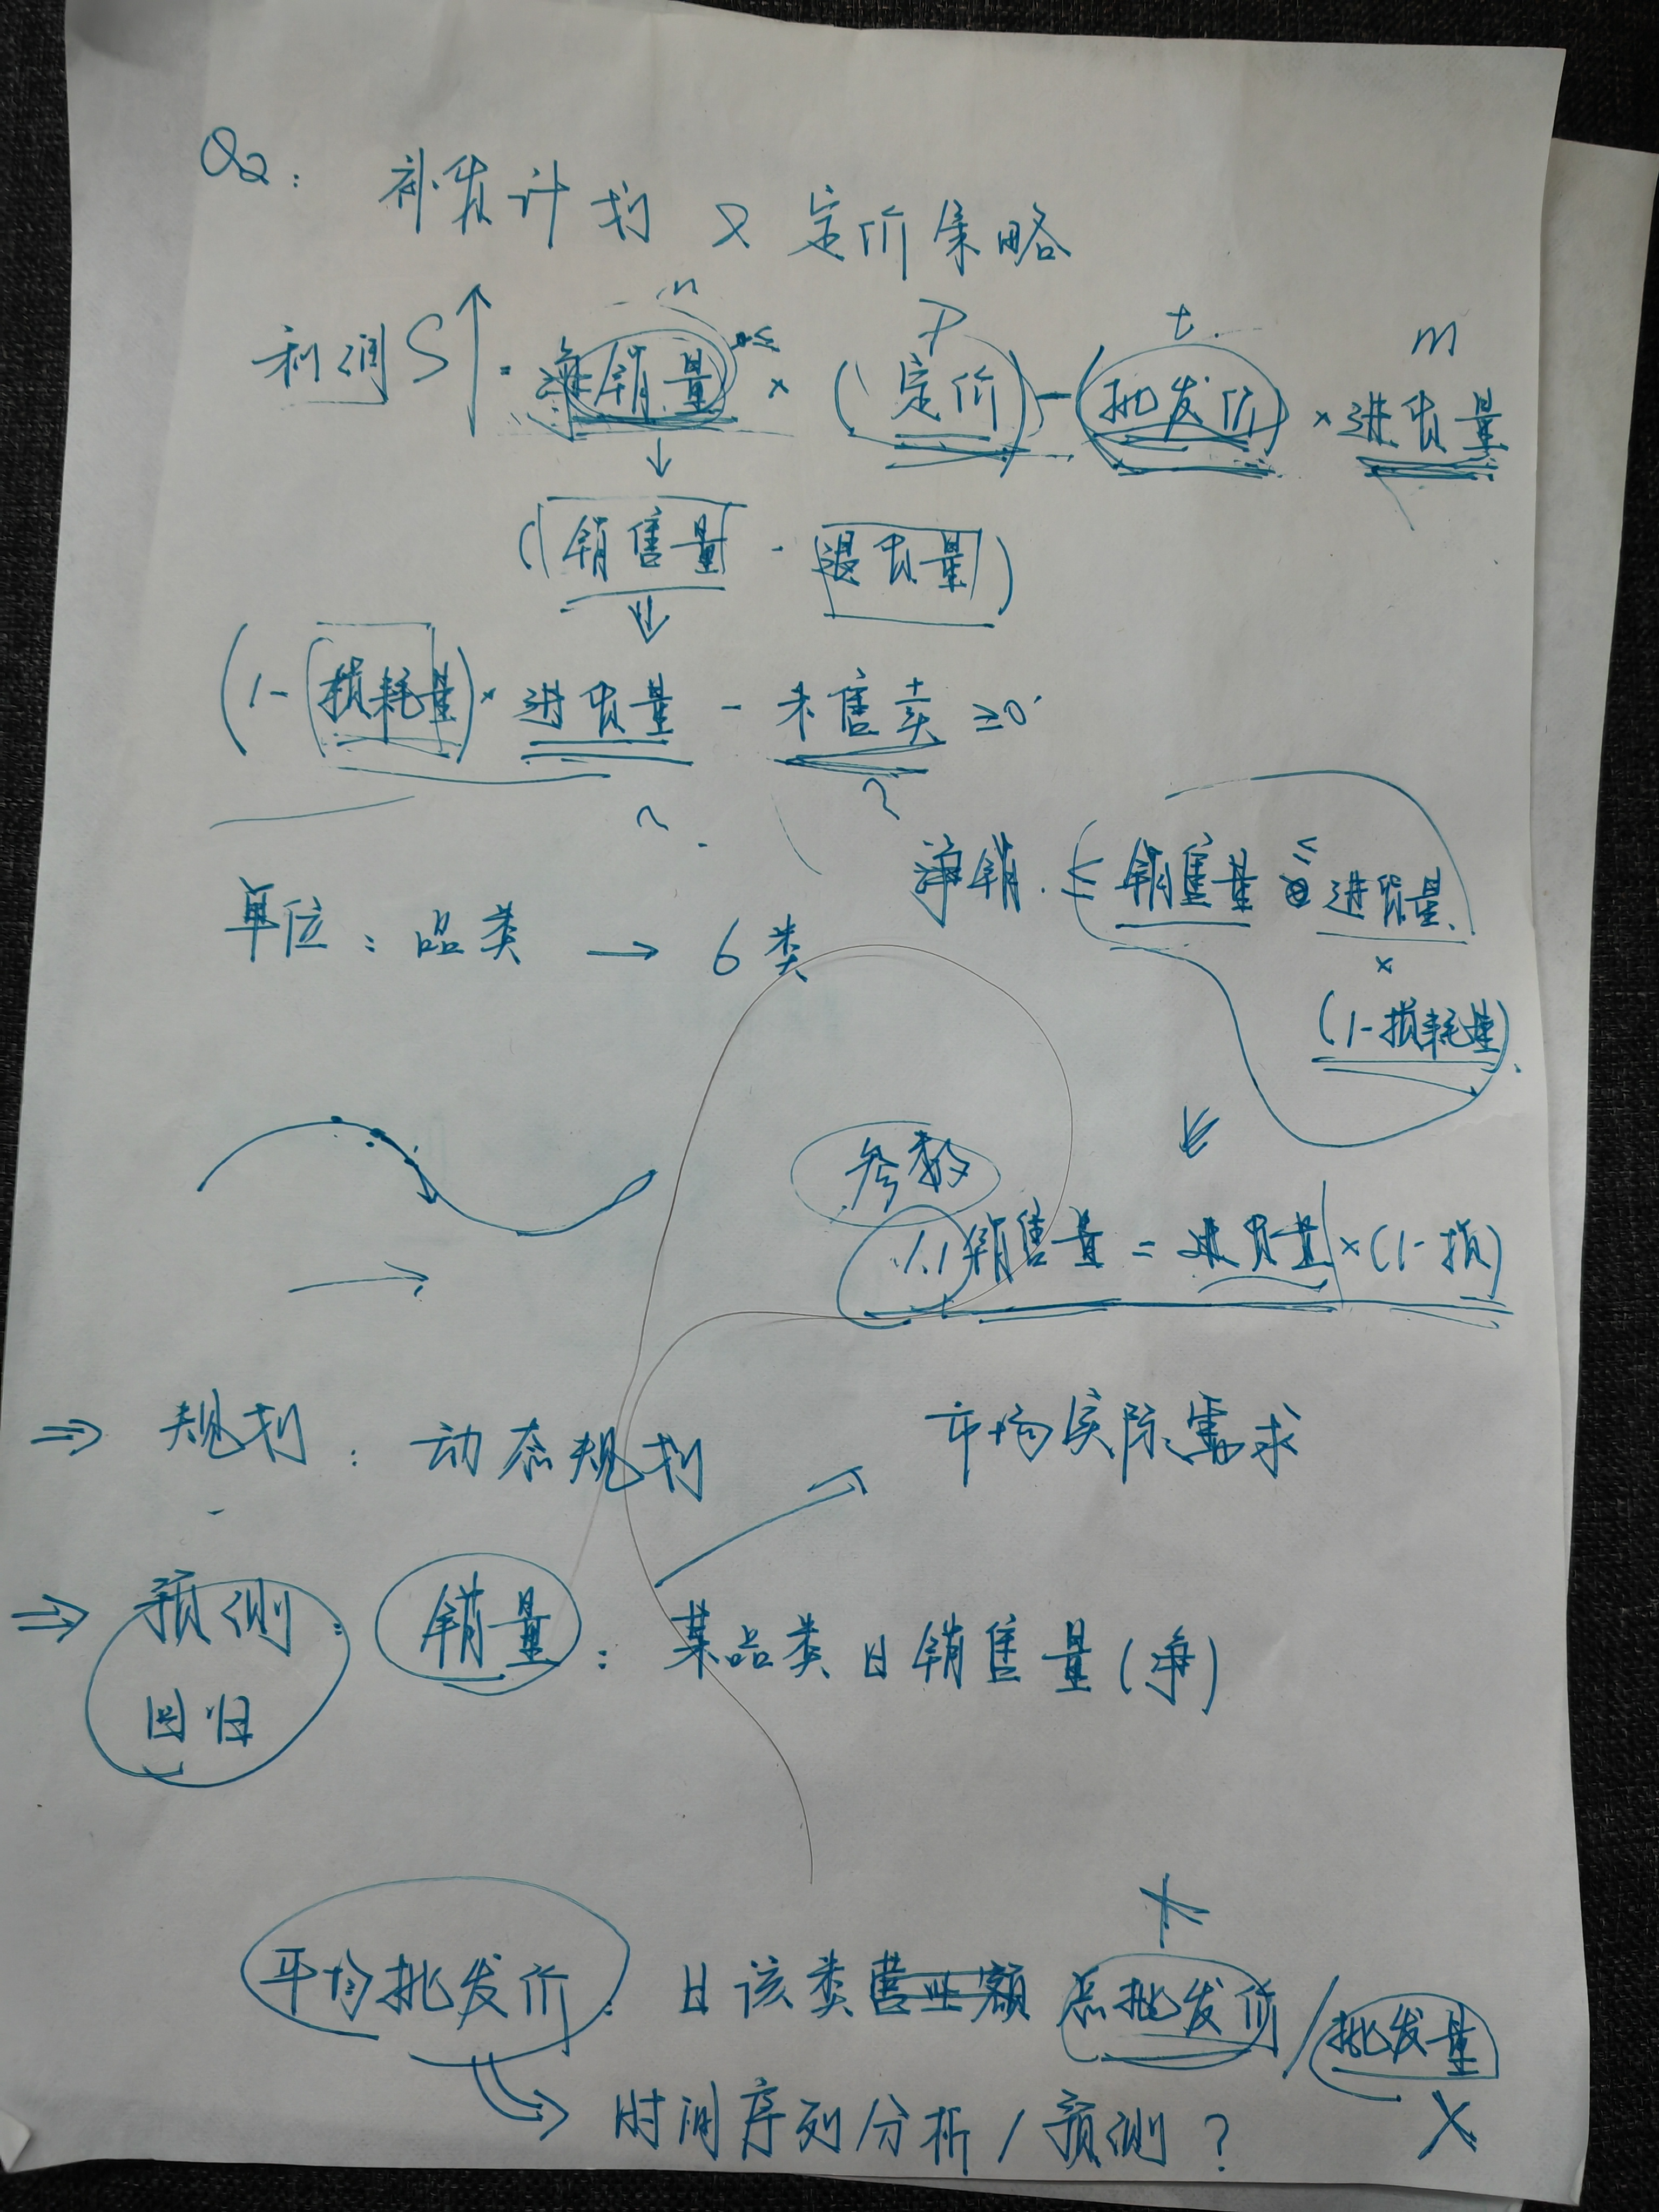 Q2: 补货计划 & 定价策略
n P t. m
利润 S↑ = 净销量 × (定价) - (批发价) × 进货量
↓
(销售量 - 退货量)
⇓
(1-损耗量) × 进货量 - 未售卖 ≥0
? ?
净销 ≤ 销售量 ≤ 进货量
×
(1-损耗量)
单位: 品类 → 6类
参数
1.1 销售量 = 进货量 × (1-损)
⇒ 规划: 动态规划
市场实际需求
⇒ 预测: 销量: 某品类日销售量(净)
回归
平均批发价: 日该类营业额 总批发价/批发量
⇒ 时间序列分析/预测?